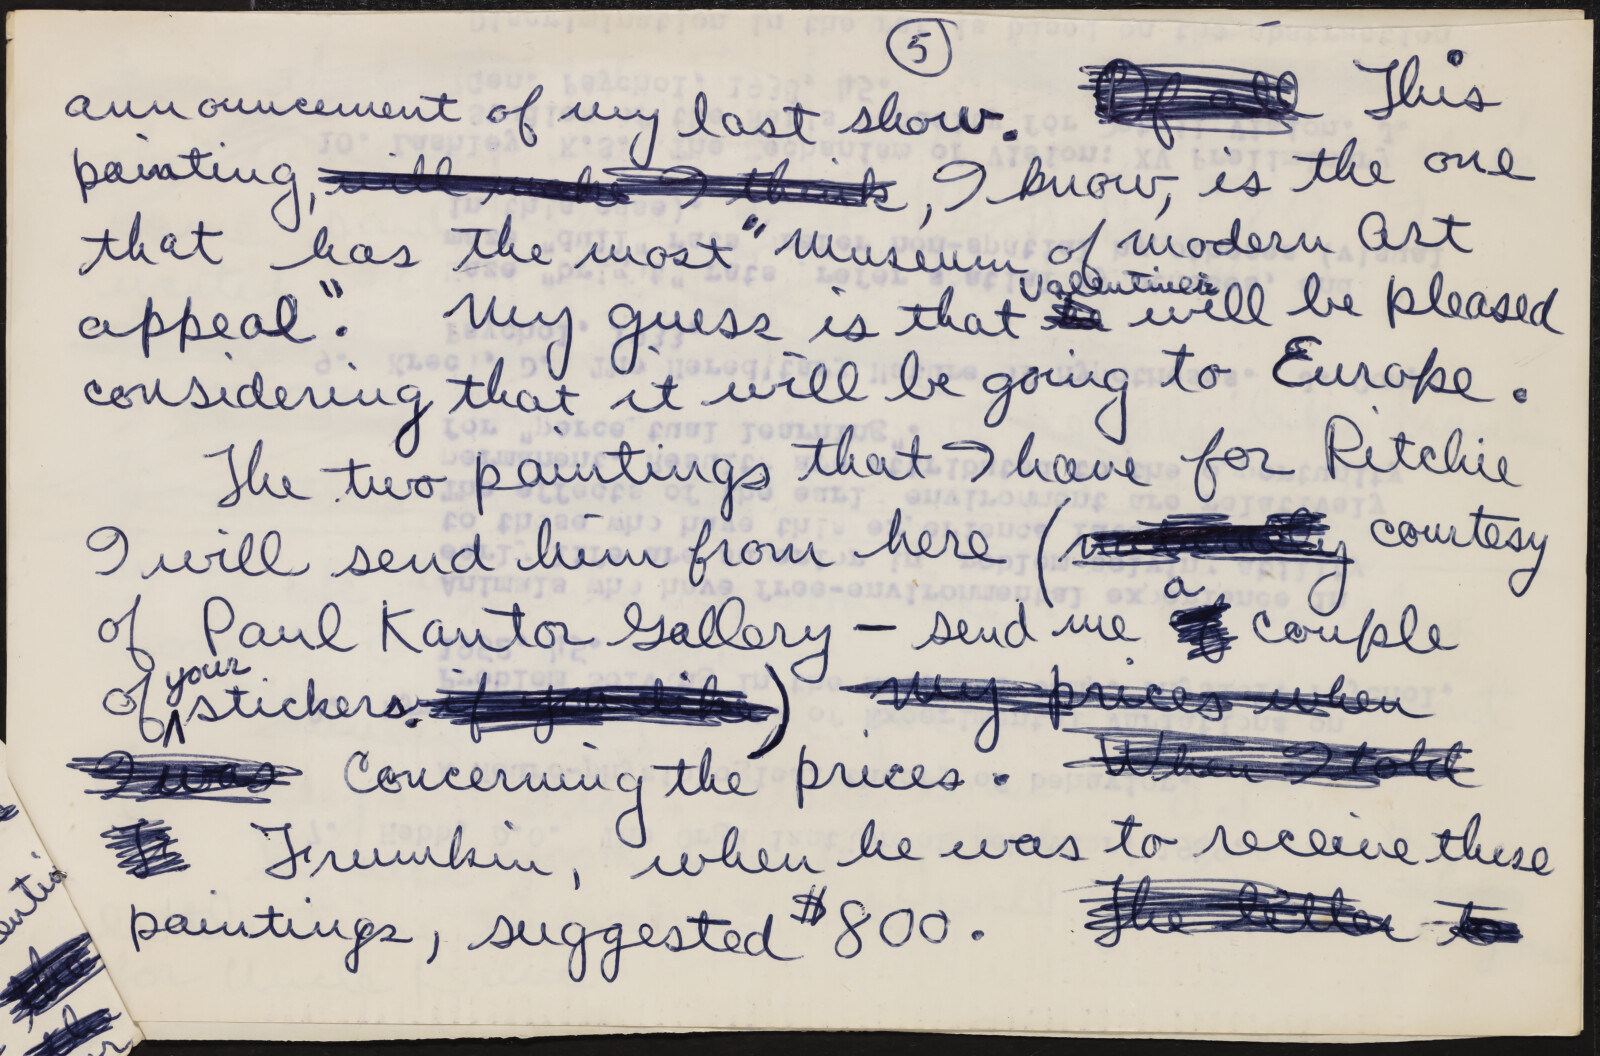 5
announcement of my last show. Of all This
painting, will make I think, I know, is the one
that has the most "Museum of Modern Art
appeal". My guess is that Valentiner will be pleased
considering that it will be going to Europe.
The two paintings that I have for Ritchie
I will send him from here ( courtesy
of Paul Kantor Gallery – send me a couple
of your stickers. if you like) My prices when
I was Concerning the prices. When I told
Frumkin, when he was to receive these
paintings, suggested $800. The letter to